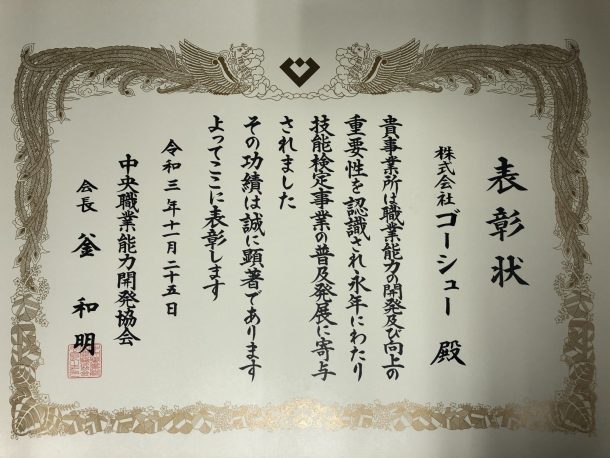 表彰状
株式会社 ゴーシュー 殿
貴事業所は職業能力の開発及び向上の
重要性を認識され永年にわたり
技能検定事業の普及発展に寄与
されました
その功績は誠に顕著であります
よってここに表彰します
令和三年十一月二十五日
中央職業能力開発協会
会長 釜 和明